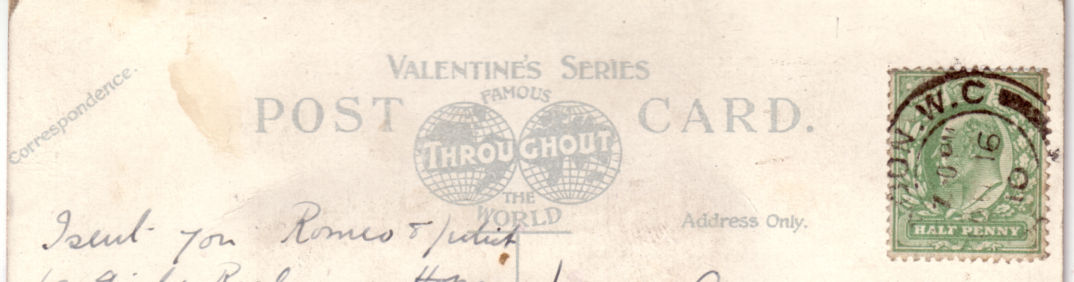 Correspondence.
VALENTINE'S SERIES
FAMOUS
POST CARD.
THROUGHOUT
THE
WORLD
Address Only.
W.C
16
10
HALF PENNY
I sent you Romeo & Juliet